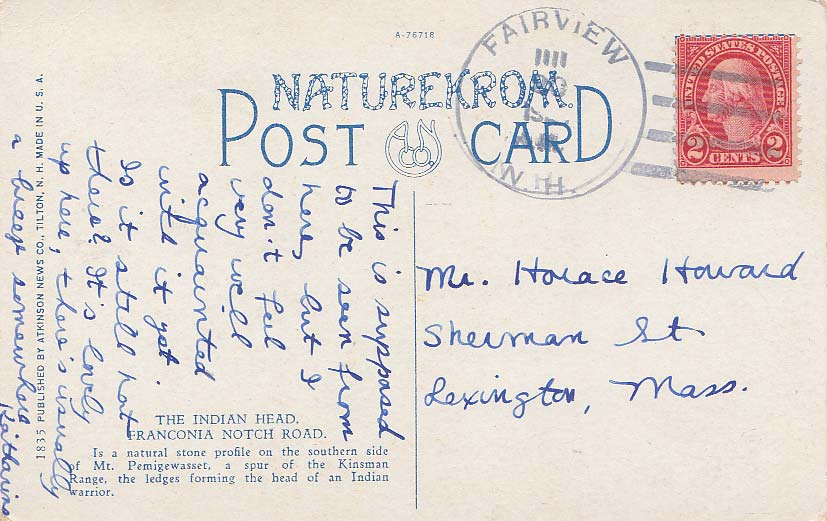 A-76718
NATUREKROM
POST CARD
ANCo
FAIRVIEW
W.H.
UNITED STATES POSTAGE
2 CENTS 2
This is supposed
to be seen from
here, but I
don't feel
very well
acquainted
with it yet.
Is it still hot
there? It's lovely
up here, & there's usually
a breeze somewhere
Katharine
Mr. Horace Howard
Sherman St
Lexington, Mass.
THE INDIAN HEAD,
FRANCONIA NOTCH ROAD.
Is a natural stone profile on the southern side
of Mt. Pemigewasset, a spur of the Kinsman
Range, the ledges forming the head of an Indian
warrior.
1835 PUBLISHED BY ATKINSON NEWS CO., TILTON, N. H. MADE IN U. S. A.